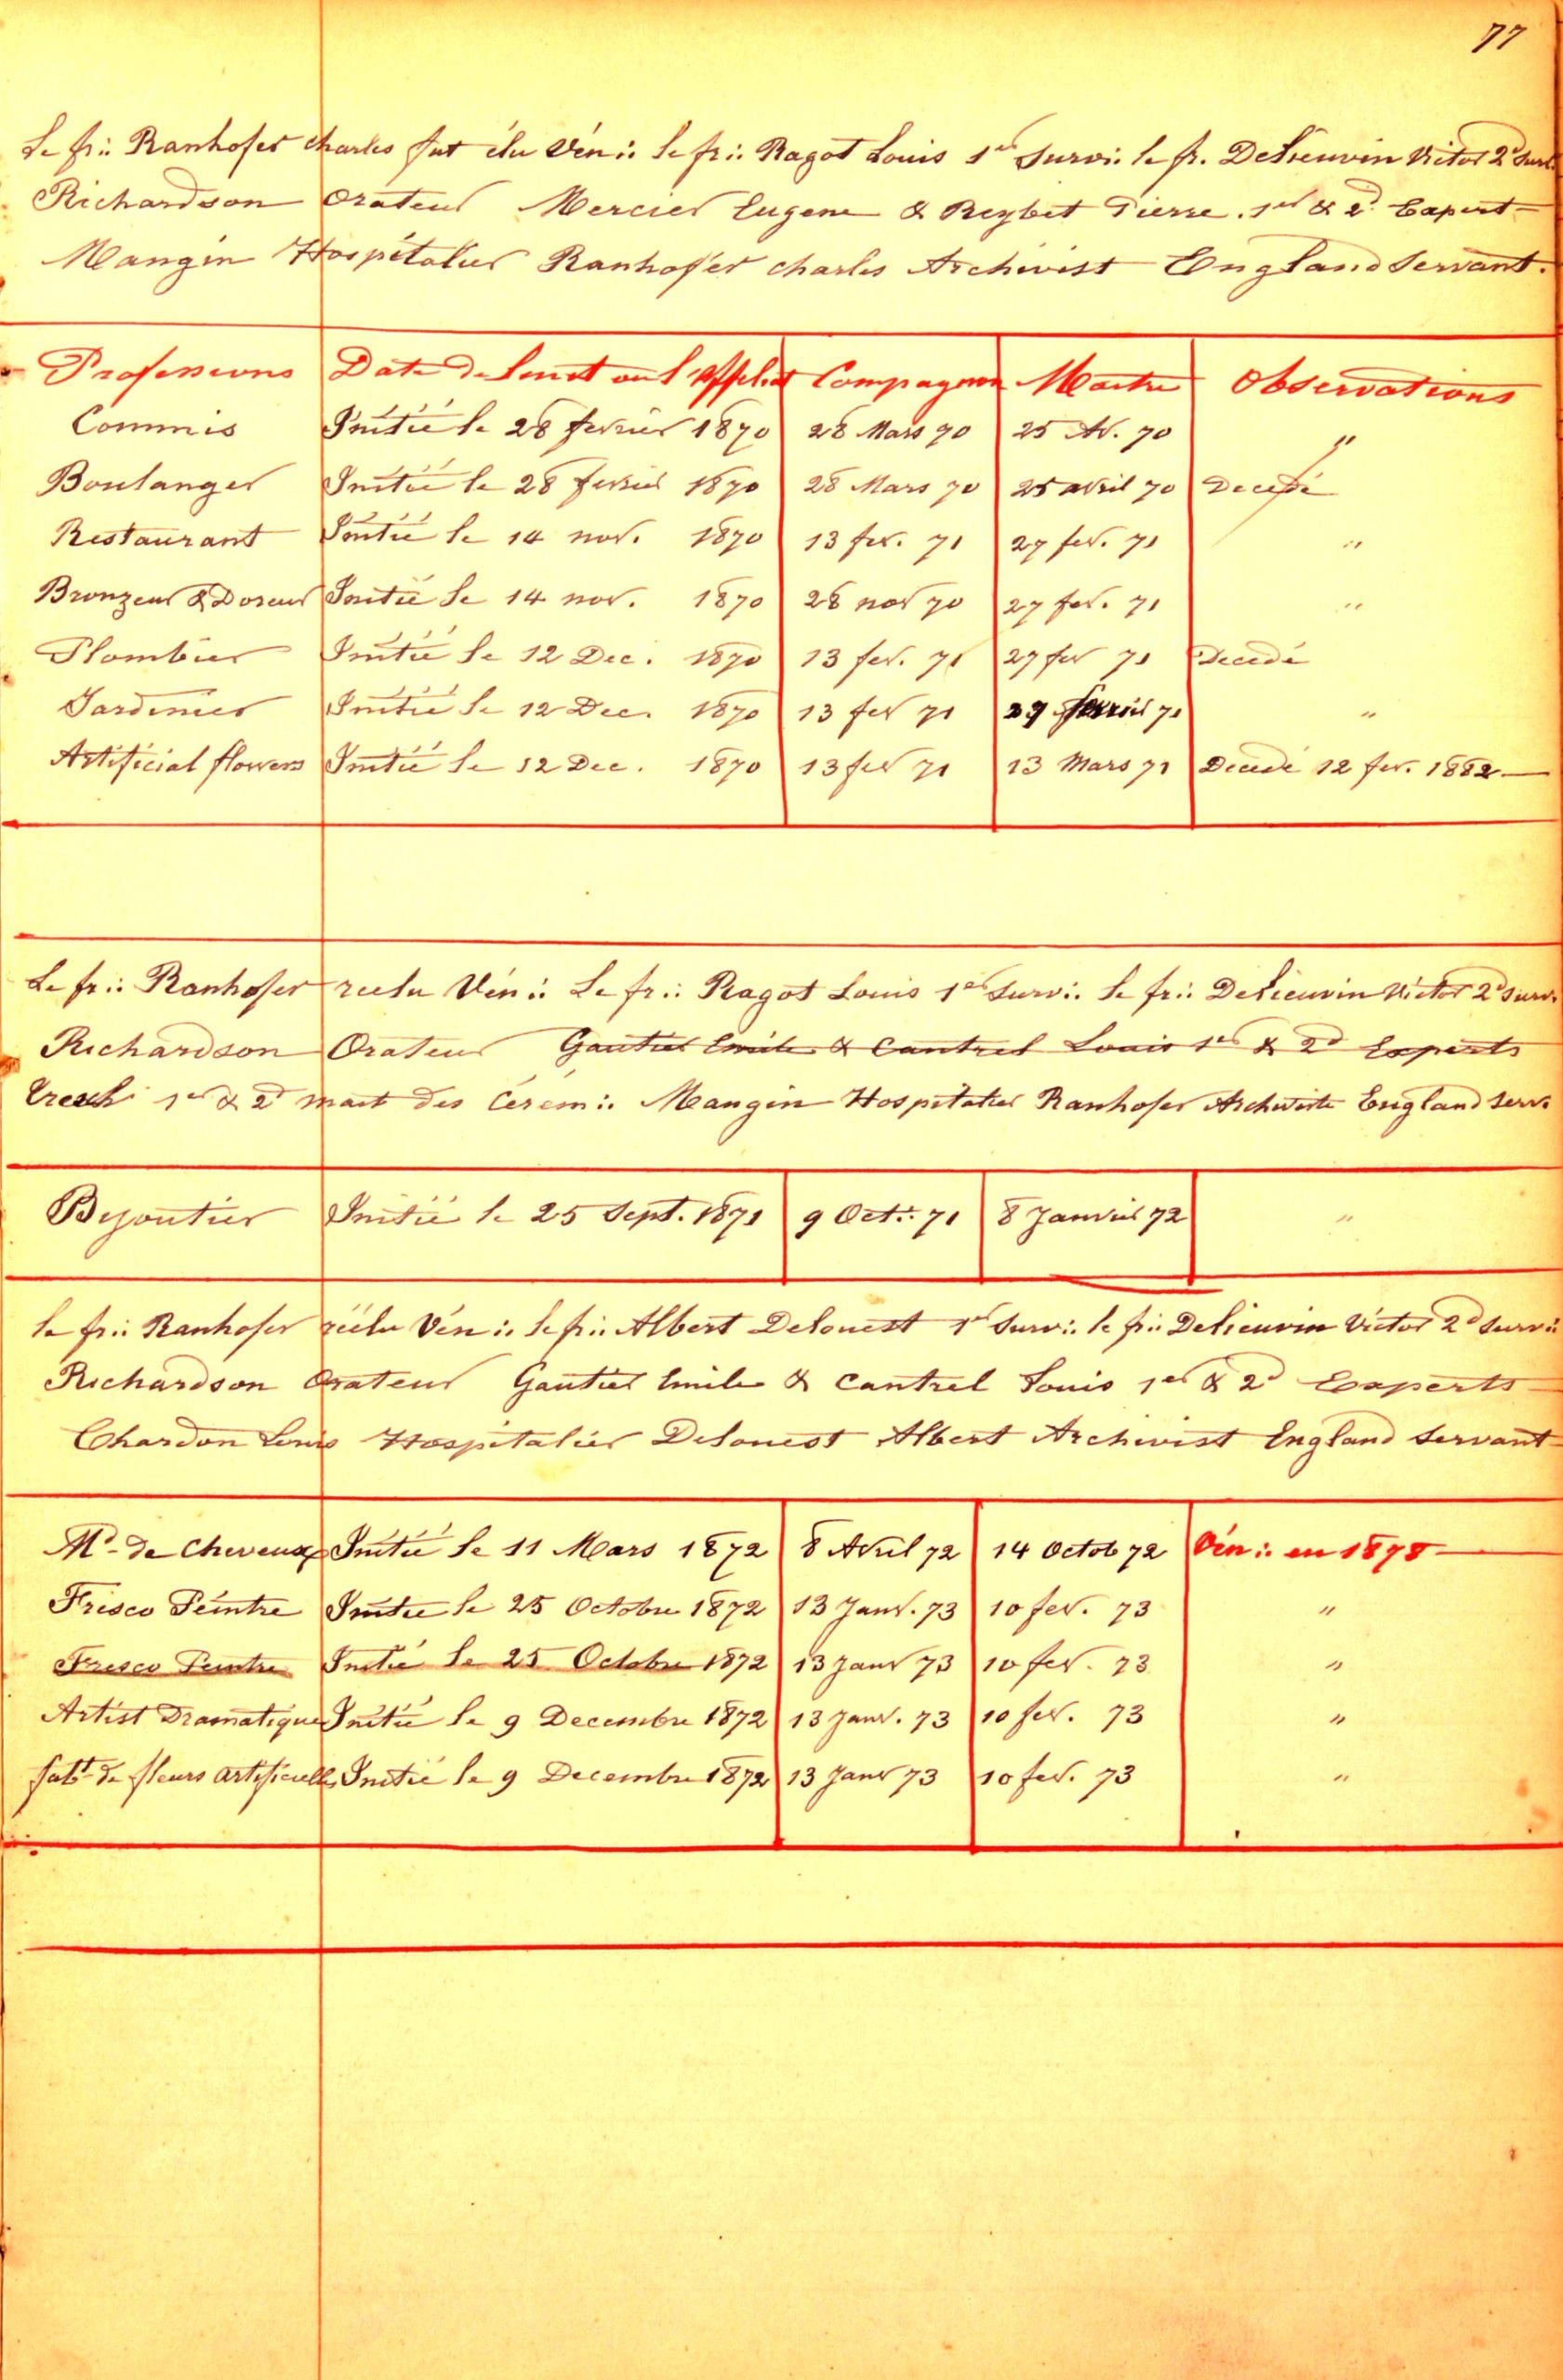 77
Le fr∴ Ranhofer Charles fut élu Vén∴ Le fr∴ Ragot Louis 1er Surv∴ le fr. Delieuvin Victor 2d Surv
Richardson Orateur Mercier Eugene & Reybet Pierre. 1er & 2d Expert
Mangin Hospitalier Ranhofer Charles Archivist England Servant.
Professions Date de l'Initt ou l'Affiliat Compagnon Maitre Observations
Commis Initié le 28 fevrier 1870 28 Mars 70 25 Av. 70 "
Boulanger Initié le 28 fevrier 1870 28 Mars 70 25 avril 70 Decédé
Restaurant Initié le 14 nov. 1870 13 fev. 71 27 fev. 71 "
Bronzeur & Doreur Initié le 14 nov. 1870 28 nov 70 27 fev. 71 "
Plombier Initié le 12 Dec. 1870 13 fev. 71 27 fev 71 Decedé
Jardinier Initié le 12 Dec. 1870 13 fev 71 27 fevrier 71 "
Artificial flowers Initié le 12 Dec. 1870 13 fev 71 13 Mars 71 Decedé 12 fev. 1882
Le fr∴ Ranhofer reelu Vén∴ Le fr∴ Ragot Louis 1er Surv∴ Le fr∴ Delieuvin Victor 2d surv.
Richardson Orateur Gautier Emile & Cantrel Louis 1er & 2d Experts
1er & 2d mait des Cérém∴ Mangin Hospitalier Ranhofer Archiviste England serv.
Bijoutier Initié le 25 Sept. 1871 9 Oct∴ 71 8 Janvier 72 "
le fr∴ Ranhofer réélu Vén∴ le fr∴ Albert Delouest 1er Surv∴ le fr∴ Delieuvin Victor 2d Surv∴
Richardson Orateur Gautier Emile & Cantrel Louis 1er & 2d Experts
Chardon Louis Hospitalier Delouest Albert Archivist England Servant
Md de Cheveux Initié le 11 Mars 1872 8 Avril 72 14 Octob 72 Vén∴ en 1878
Frisco Peintre Initié le 25 Octobre 1872 13 Janv. 73 10 fev. 73 "
Fresco Peintre Initié le 25 Octobre 1872 13 Janv 73 10 fev. 73 "
Artist Dramatique Initié le 9 Decembre 1872 13 Janv. 73 10 fev. 73 "
fabt de fleurs artificielles Initié le 9 Decembre 1872 13 Janv 73 10 fev. 73 "